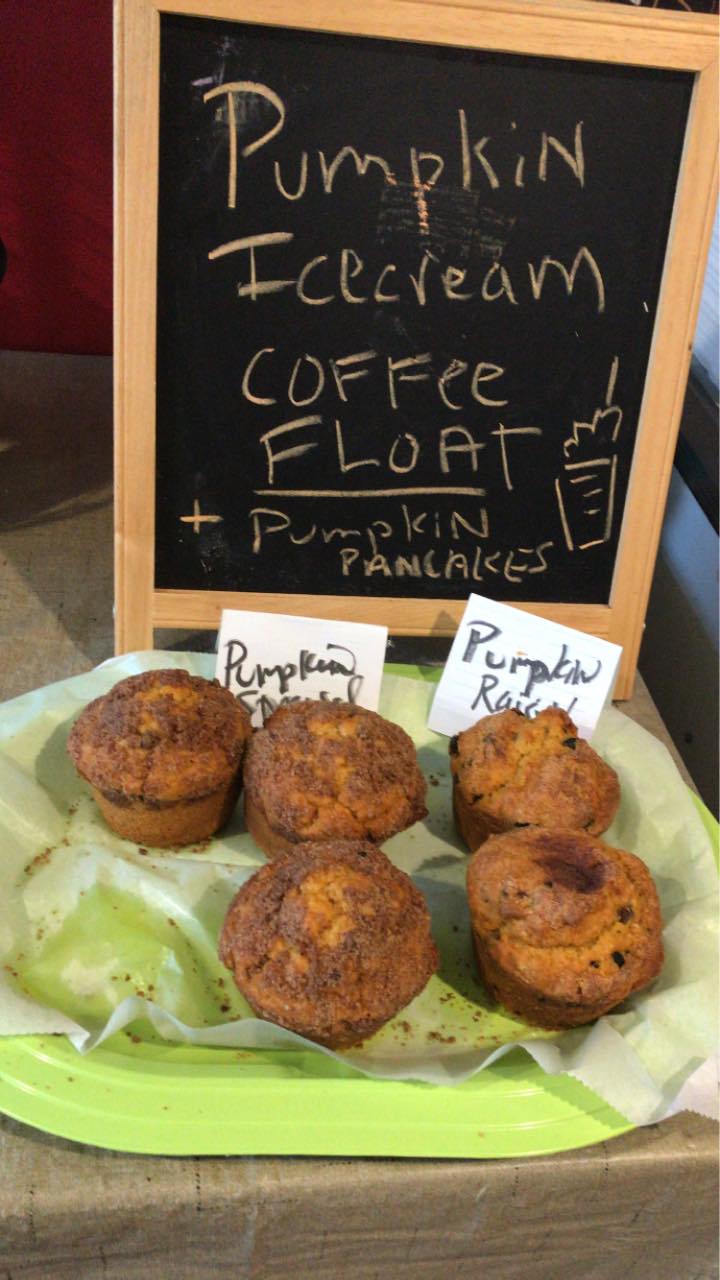 Pumpkin
Icecream
COFFee
FLOAT
+ Pumpkin
PANCAKES
Pumpkin
Pumpkin
Raisin